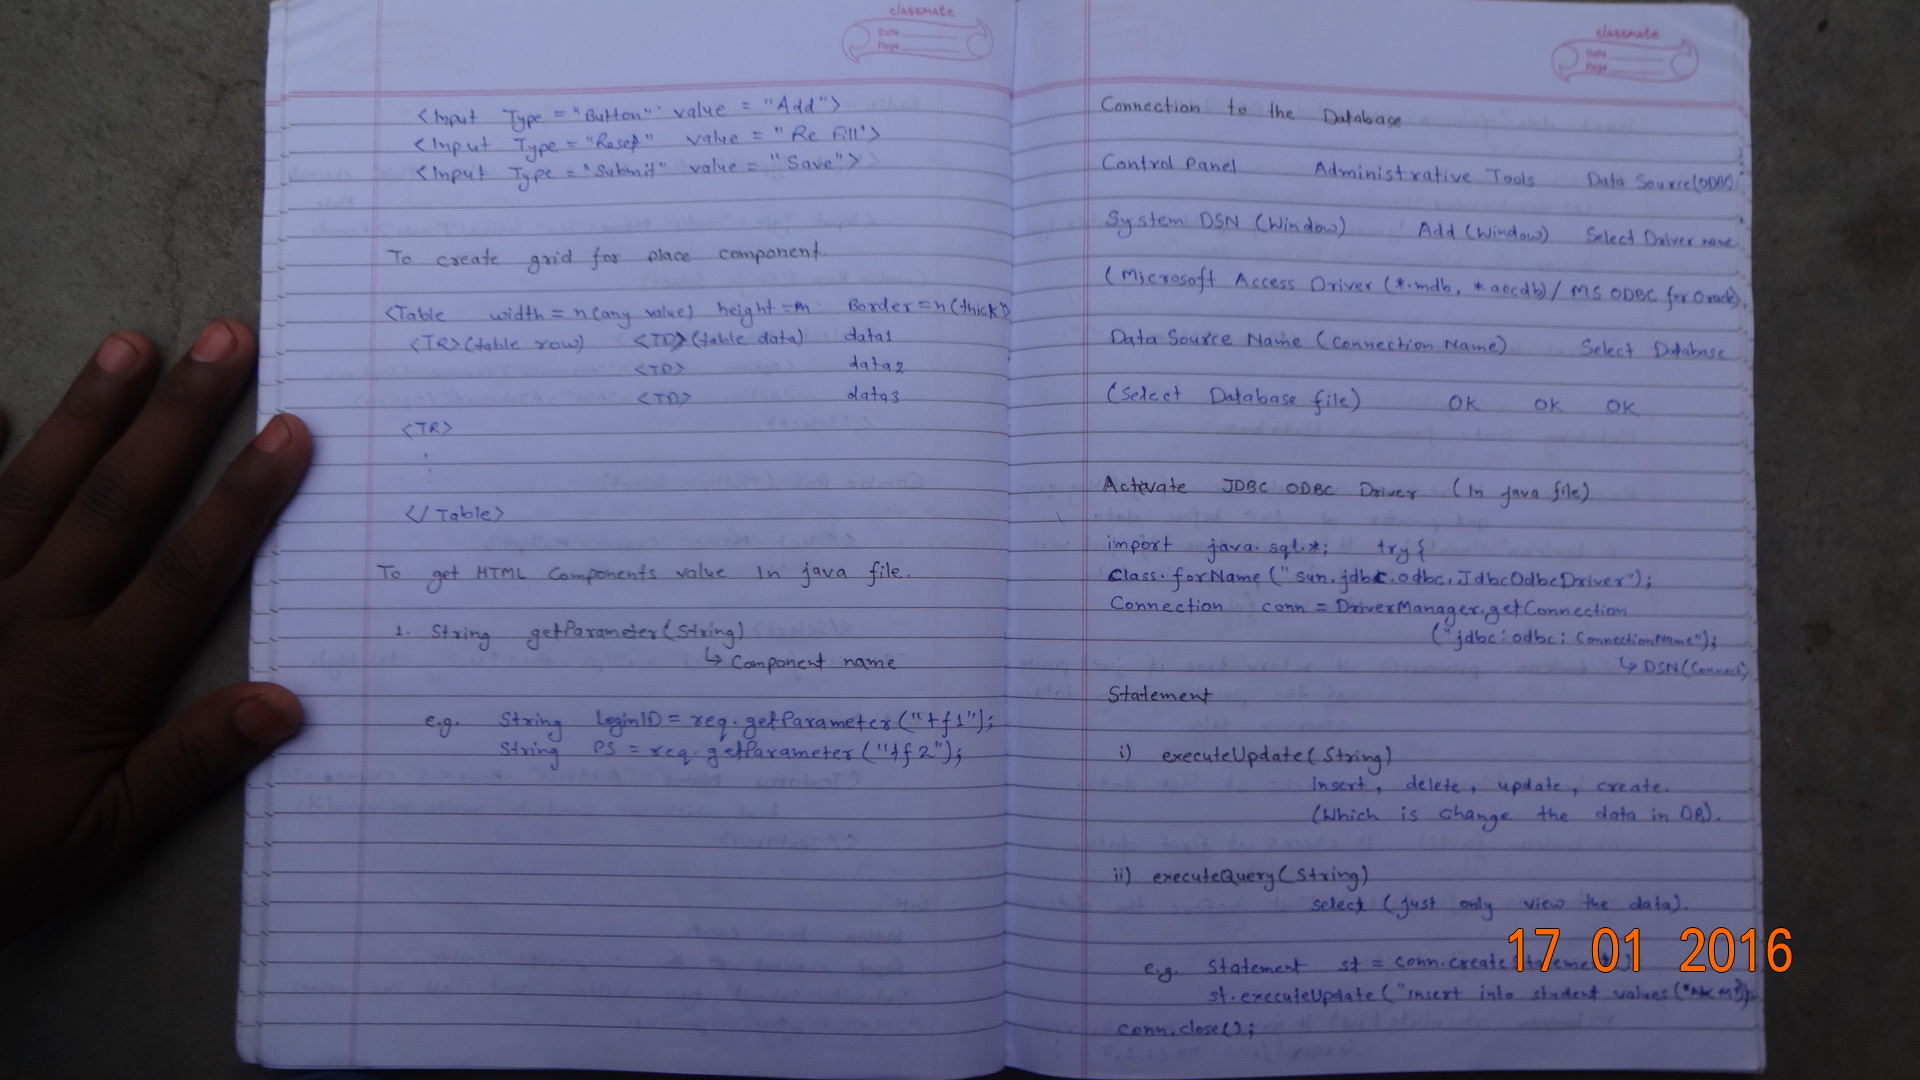 classmate
Date
Page
<Input Type = "Button" value = "Add">
<Input Type = "Reset" value = "Re fill">
<Input Type = "Submit" value = "Save">
To create grid for place component.
<Table width = n (any value) height = m Border = n (thick)
<TR> (table row) <TD> (table data) data1
<TD> data2
<TD> data3
<TR>
</Table>
To get HTML Components value In java file.
1. String getParameter(String)
↳ Component name
e.g. String LoginID = req.getParameter("tf1");
String PS = req.getParameter("tf2");
classmate
Date
Page
Connection to the Database
Control Panel Administrative Tools Data Source(ODBC)
System DSN (Window) Add (Window) Select Driver name
(Microsoft Access Driver (*.mdb, *.accdb) / MS ODBC for Oracle)
Data Source Name (Connection Name) Select Database
(Select Database file) OK OK OK
Activate JDBC ODBC Driver (In java file)
import java.sql.*; try{
Class.forName("sun.jdbc.odbc.JdbcOdbcDriver");
Connection conn = DriverManager.getConnection
("jdbc:odbc:ConnectionName");
↳ DSN(Connect)
Statement
i) executeUpdate(String)
Insert, delete, update, create.
(Which is change the data in DB).
ii) executeQuery(String)
select (just only view the data).
e.g. Statement st = conn.createStatement()
st.executeUpdate("insert into student values(
conn.close();
17 01 2016